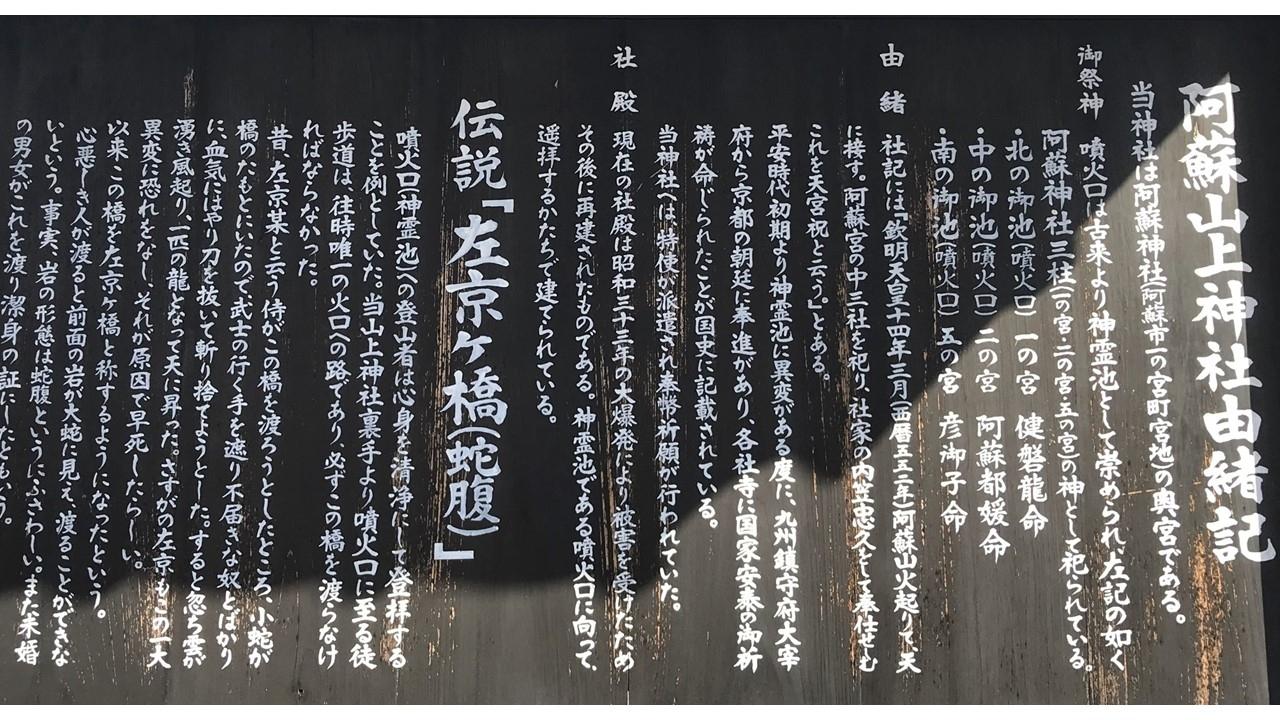 阿蘇山上神社由緒記
当神社は阿蘇神社(阿蘇市一の宮町宮地)の奥宮である。
御祭神 噴火口は古来より神霊池として崇められ、左記の如く
阿蘇神社三柱(一の宮・二の宮・五の宮)の神として祀られている。
・北の御池(噴火口) 一の宮 健磐龍命
・中の御池(噴火口) 二の宮 阿蘇都媛命
・南の御池(噴火口) 五の宮 彦御子命
由緒 社記には「欽明天皇十四年三月(西暦五五三年)阿蘇山火起りて天
に接す。阿蘇宮の中三社を祀り、社家の内笠忠久をして奉仕せむ
これを天宮祝と云う。」とある。
平安時代初期より神霊池に異変がある度に、九州鎮守府大宰
府から京都の朝廷に奉進があり、各社寺に国家安泰の御祈
祷が命じられたことが国史に記載されている。
当神社へは特使が派遣され奉幣祈願が行われていた。
社殿 現在の社殿は昭和三十三年の大爆発により被害を受けたため
その後に再建されたものである。神霊池である噴火口に向って、
遥拝するかたちで建てられている。
伝説「左京ケ橋(蛇腹)」
噴火口(神霊池)への登山者は心身を清浄にして登拝する
ことを例としていた。当山上神社裏手より噴火口に至る徒
歩道は、往時唯一の火口への路であり、必ずこの橋を渡らなけ
ればならなかった。
昔、左京某と云う侍がこの橋を渡ろうとしたところ、小蛇が
橋のたもとにいたので武士の行く手を遮り不届きな奴とばかり
に、血気にはやり刀を抜いて斬り捨てようとした。すると忽ち雲が
湧き風起り、一匹の龍となって天に昇った。さすがの左京もこの一大
異変に恐れをなし、それが原因で早死したらしい。
以来この橋を左京ケ橋と称するようになったという。
心悪しき人が渡ると前面の岩が大蛇に見え、渡ることができな
いという。事実、岩の形態は蛇腹というにふさわしい。また未婚
の男女がこれを渡り潔身の証にしたともいう。